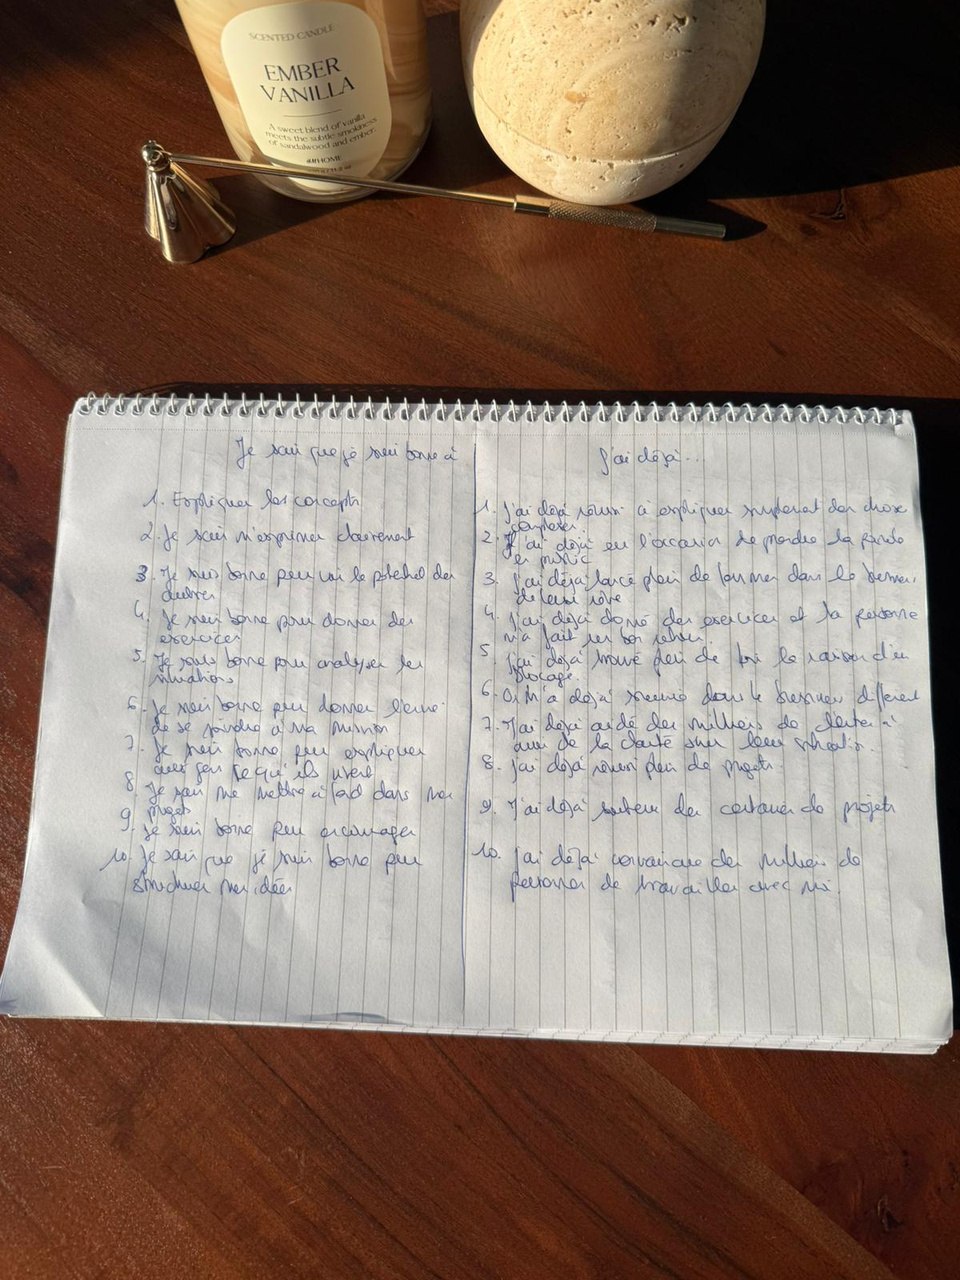 SCENTED CANDLE
EMBER
VANILLA
A sweet blend of vanilla
meets the subtle smokiness
of sandalwood and ember.
HOME
Je sais que je suis bonne à
1. Expliquer les concepts
2. Je sais m'exprimer clairement
3. Je suis bonne pour voir le potentiel des
autres
4. Je suis bonne pour donner des
exercices
5. Je suis bonne pour analyser les
situations
6. Je suis bonne pour donner l'envie
de se joindre à ma mission
7. Je suis bonne pour expliquer
aux gens ce qu'ils vivent
8. Je sais me mettre à fond dans mes
projets
9. Je suis bonne pour encourager
10. Je sais que je suis bonne pour
structurer mes idées
J'ai déjà...
1. J'ai déjà réussi à expliquer simplement des choses
complexes.
2. J'ai déjà eu l'occasion de prendre la parole
en public
3. J'ai déjà lancé plein de femmes dans le business
de leur rêve
4. J'ai déjà donné des exercices et la personne
m'a fait un bon retour.
5. J'ai déjà trouvé plein de fois la raison d'un
blocage.
6. On m'a déjà dans le business différent
7. J'ai déjà aidé des milliers de clientes à
avoir de la clarté sur leur situation.
8. J'ai déjà réussi plein de projets.
9. J'ai déjà soutenu des centaines de projets
10. J'ai déjà convaincu des milliers de
personnes de travailler avec moi.